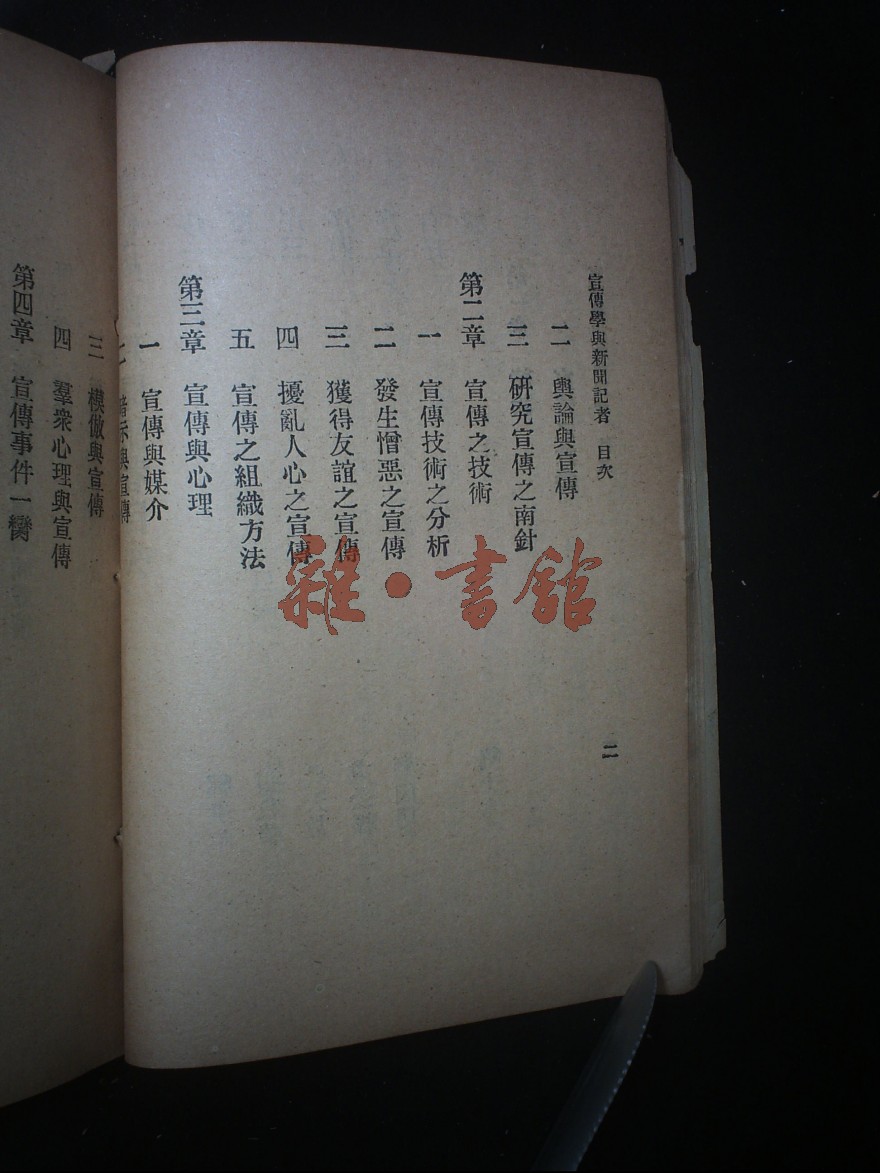 宣傳學與新聞記者 目次
二 輿論與宣傳
三 研究宣傳之南針
第二章 宣傳之技術
一 宣傳技術之分析
二 發生憎惡之宣傳
三 獲得友誼之宣傳
四 擾亂人心之宣傳
五 宣傳之組織方法
第三章 宣傳與心理
一 宣傳與媒介
二 暗示與宣傳
三 模倣與宣傳
四 羣衆心理與宣傳
第四章 宣傳事件一臠
二
雜·書館